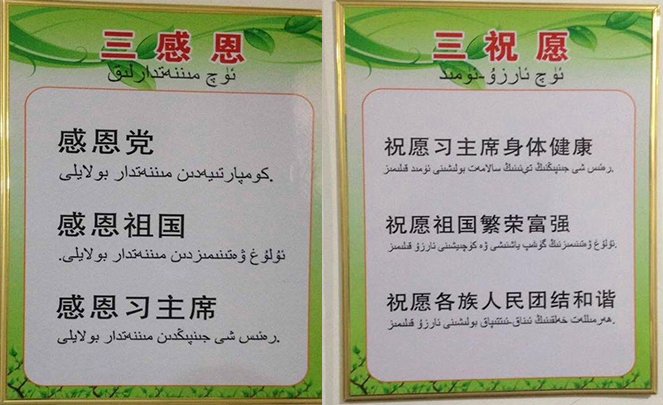 三感恩
ئۈچ مىننەتدارلىق
感恩党
كومپارتىيەدىن مىننەتدار بولايلى.
感恩祖国
ئۇلۇغ ۋەتىنىمىزدىن مىننەتدار بولايلى.
感恩习主席
رەئىس شى جىنپىڭدىن مىننەتدار بولايلى.
三祝愿
ئۈچ ئارزۇ-ئۈمىد
祝愿习主席身体健康
رەئىس شى جىنپىڭنىڭ تېنىنىڭ سالامەت بولىشىنى ئۈمىد قىلىمىز.
祝愿祖国繁荣富强
ئۇلۇغ ۋەتىنىمىزنىڭ گۈللەپ ياشنىشى ۋە كۈچىيىشىنى ئارزۇ قىلىمىز.
祝愿各族人民团结和谐
ھەرمىللەت خەلقىنىڭ ئىناق-ئىتتىپاق بولىشىنى ئارزۇ قىلىمىز.